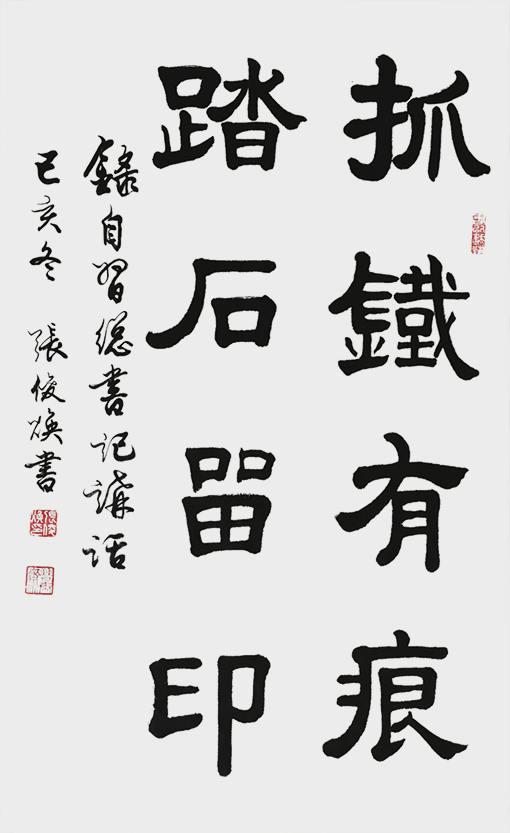 抓鐵有痕
踏石留印
錄自習總書記講話
己亥冬 張俊煥書